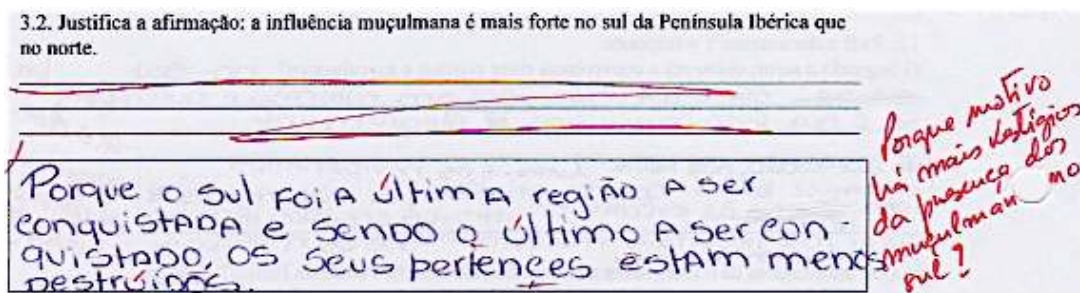 3.2. Justifica a afirmação: a influência muçulmana é mais forte no sul da Península Ibérica que
no norte.
Porque o sul foi A última região A ser
conquistADA e sendo o último A ser con-
quistADO, os seus pertences estAm menos
destruídos.
Porque motivo
há mais vestígios
da presença dos
muçulman no
sul?